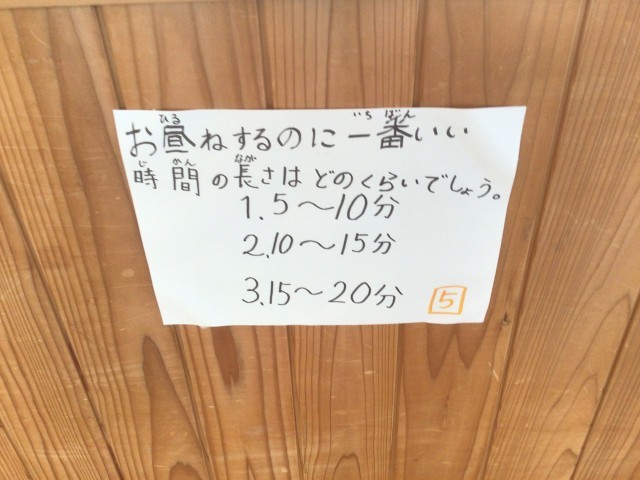 お昼ねするのに一番いい
時間の長さはどのくらいでしょう。
1.5〜10分
2.10〜15分
3.15〜20分
5